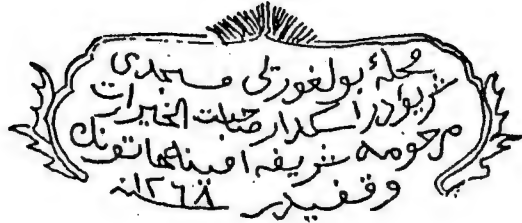 محلهٔ بولغورلی مسجدی
اسکدار صاحبت الخیرات
مرحومه شریفه امینه خاتونك
وقفیدر ١٢٦٨